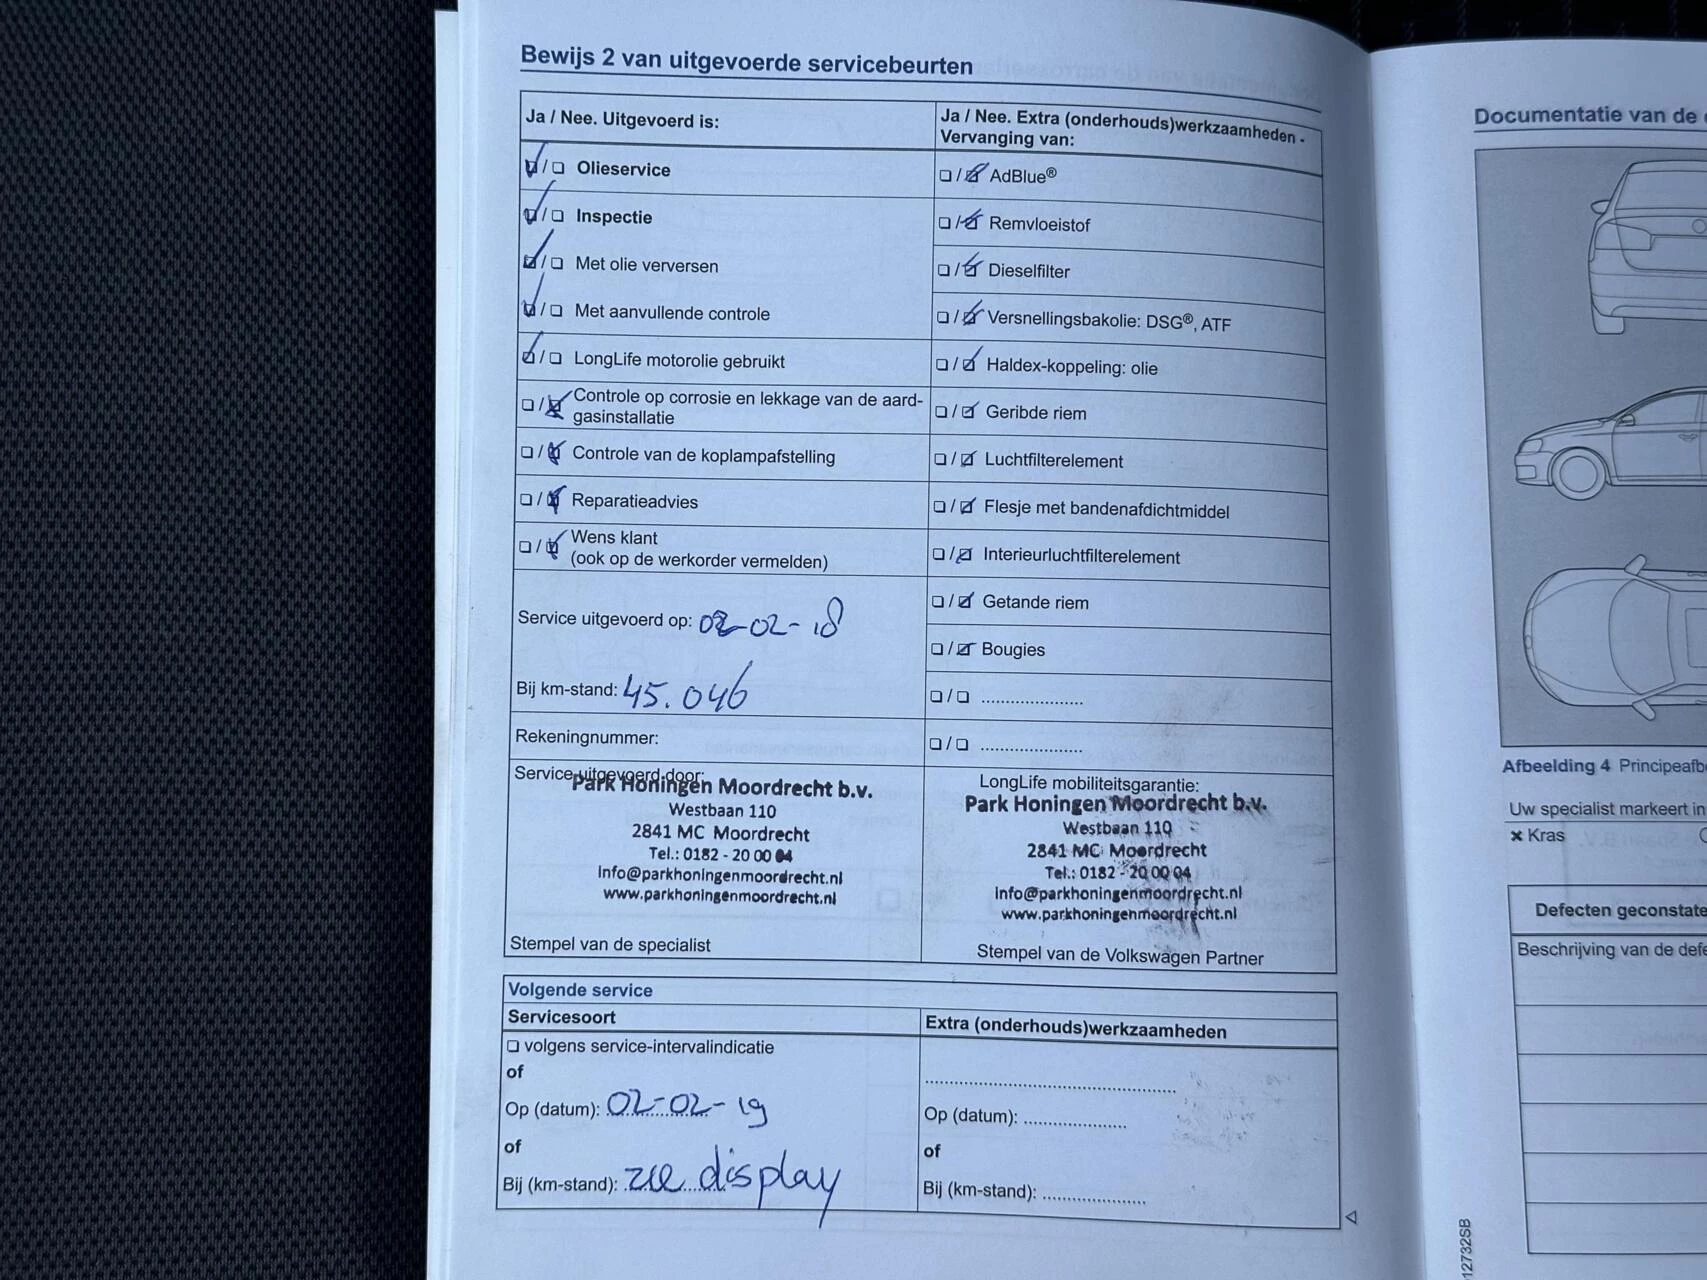 Bewijs 2 van uitgevoerde servicebeurten
Ja / Nee. Uitgevoerd is:
☑/☐ Olieservice
☑/☐ Inspectie
☑/☐ Met olie verversen
☑/☐ Met aanvullende controle
☑/☐ LongLife motorolie gebruikt
☐/☑ Controle op corrosie en lekkage van de aard-
gasinstallatie
☐/☑ Controle van de koplampafstelling
☐/☑ Reparatieadvies
☐/☑ Wens klant
(ook op de werkorder vermelden)
Service uitgevoerd op: 02-02-18
Bij km-stand: 45.046
Rekeningnummer:
Service uitgevoerd door:
Park Honingen Moordrecht b.v.
Westbaan 110
2841 MC Moordrecht
Tel.: 0182 - 20 00 04
Info@parkhoningenmoordrecht.nl
www.parkhoningenmoordrecht.nl
Stempel van de specialist
Ja / Nee. Extra (onderhouds)werkzaamheden -
Vervanging van:
☐/☑ AdBlue®
☐/☑ Remvloeistof
☐/☑ Dieselfilter
☐/☑ Versnellingsbakolie: DSG®, ATF
☐/☑ Haldex-koppeling: olie
☐/☑ Geribde riem
☐/☑ Luchtfilterelement
☐/☑ Flesje met bandenafdichtmiddel
☐/☑ Interieurluchtfilterelement
☐/☑ Getande riem
☐/☑ Bougies
☐/☐ .....................
☐/☐ .....................
LongLife mobiliteitsgarantie:
Park Honingen Moordrecht b.v.
Westbaan 110
2841 MC Moordrecht
Tel.: 0182 - 20 00 04
Info@parkhoningenmoordrecht.nl
www.parkhoningenmoordrecht.nl
Stempel van de Volkswagen Partner
Volgende service
Servicesoort
☐ volgens service-intervalindicatie
of
Op (datum): 02-02-19
of
Bij (km-stand): zie display
Extra (onderhouds)werkzaamheden
..................................................
Op (datum): .....................
of
Bij (km-stand): .....................
Documentatie van de
Afbeelding 4 Principeafb
Uw specialist markeert in
× Kras
Defecten geconstate
Beschrijving van de defe
12732SB